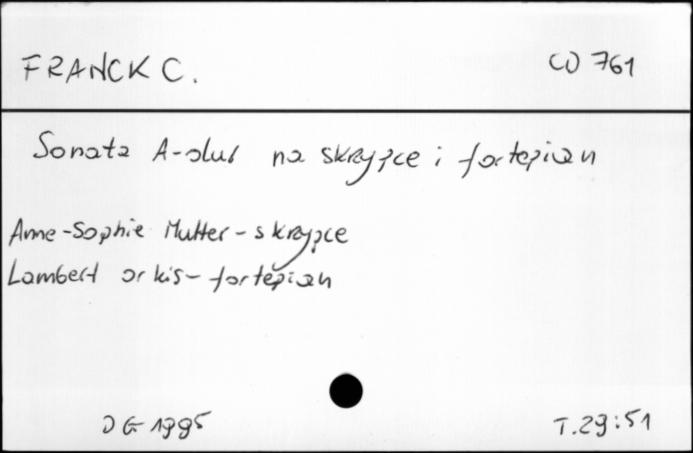 FRANCK C. CD 761
Sonata A-dur na skrzypce i fortepian
Anne-Sophie Mutter - skrzypce
Lambert Orkis - fortepian
DG 1995 T.29:51